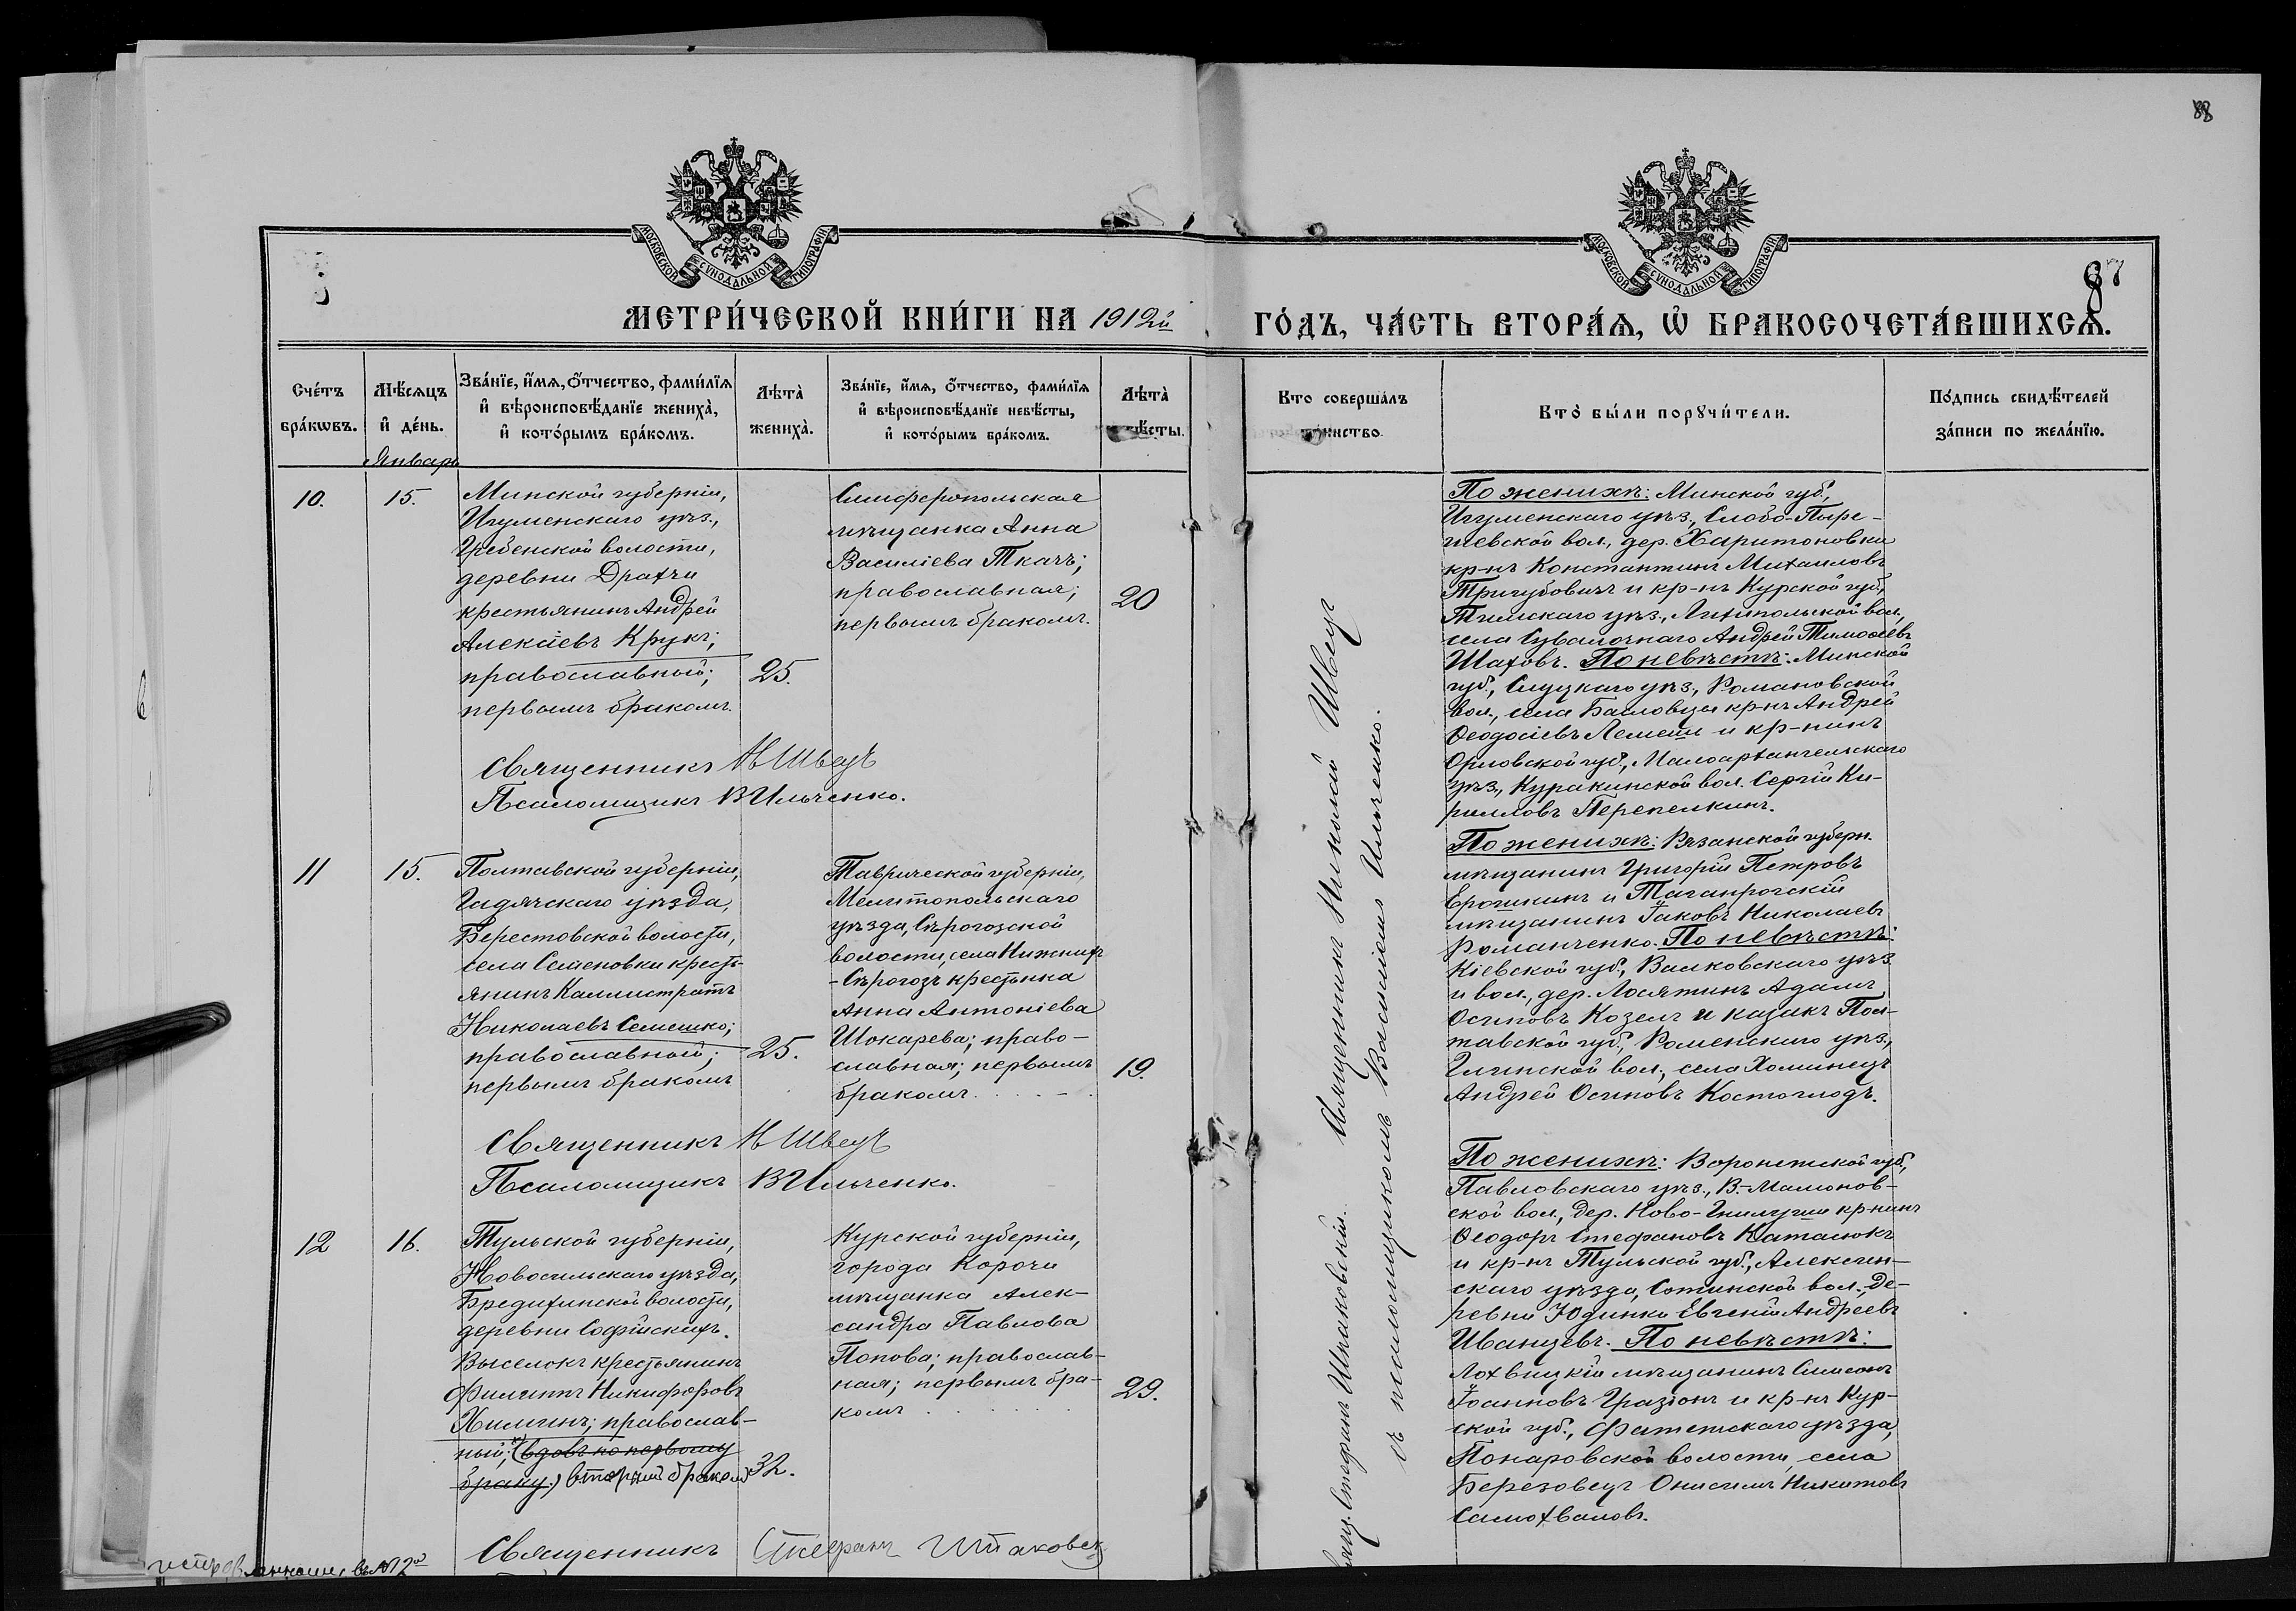 88
МОСКОВСКОЙ СѴНОДАЛЬНОЙ ТИПОГРАФІИ
МОСКОВСКОЙ СѴНОДАЛЬНОЙ ТИПОГРАФІИ
87
МЕТРИ́ЧЕСКОЙ КНИ́ГИ НА 1912й
ГО́ДЪ, ЧА́СТЬ ВТОРА́Я, Ѡ҆ БРАКОСОЧЕТА́ВШИХСЯ.
Сче́тъ бра́кѡвъ.
Мѣ́сяцъ и҆ де́нь.
Зва́нїе, и҆́мя, ѻ҆́тчество, фами́лїя
и҆ вѣроисповѣ́данїе жениха̀,
и҆ кото́рымъ бра́комъ.
Лѣта̀ жениха̀.
Зва́нїе, и҆́мя, ѻ҆́тчество, фами́лїя
и҆ вѣроисповѣ́данїе невѣ́сты,
и҆ кото́рымъ бра́комъ.
Лѣта̀
невѣ́сты.
Кто соверша́лъ
таинство.
Кто̀ бы́ли порꙋчи́тели.
По́дпись свидѣ́телей
за́писи по жела́нїю.
Январь
10.
15.
Минской губерніи,
Игуменскаго уѣз.,
Гребенской волости,
деревни Драхчи
крестьянинъ Андрей
Алексіевъ Крукъ;
православный;
первымъ бракомъ.
25.
Симферопольская
мѣщанка Анна
Василіева Ткачъ;
православная;
первымъ бракомъ.
20
Священникъ Н Швецъ
Псаломщикъ В Ильченко.
По женихѣ: Минской губ.,
Игуменскаго уѣз., Слобо-Пыре-
шевской вол., дер. Харитоновки
кр-нъ Константинъ Михаиловъ
Тригубовичъ и кр-нъ Курской губ.,
Тимскаго уѣз., Липипольской вол.,
села Сувалочнаго Андрей Тимоѳеевъ
Шаховъ. По невѣстѣ: Минской
губ., Слуцкаго уѣз., Романовской
вол., села Басловцы кр-нъ Андрей
Ѳеодосіевъ Лемеш и кр-нинъ
Орловской губ., Малоархангельскаго
уѣз., Куракинской вол. Сергій Ки-
рилловъ Перепелкинъ.
11
15.
Полтавской губерніи,
Гадячскаго уѣзда,
Берестовской волости,
села Семеновки кресть-
янинъ Каллистратъ
Николаевъ Семешко;
православный;
первымъ бракомъ
25.
Таврической губерніи,
Мелитопольскаго
уѣзда, Сѣрогозской
волости, села Нижних
-Сѣрогозъ крестьянка
Анна Антоніева
Шокарева; право-
славная; первымъ
бракомъ
19.
Священникъ Н Швецъ
Псаломщикъ В Ильченко.
По женихѣ: Рязанской губерн.
мѣщанинъ Григорій Петровъ
Ерошкинъ и Таганрогскій
мѣщанинъ Іаковъ Николаевъ
Романченко. По невѣстѣ:
Кіевской губ., Васковскаго уѣз.
и вол., дер. Лосятинъ Адамъ
Осиповъ Козелъ и казакъ Пол-
тавской губ., Роменскаго уѣз.,
Глинской вол., села Хоминецъ
Андрей Осиповъ Костоглодъ.
12
16.
Тульской губерніи,
Новосильскаго уѣзда,
Бредихинской волости,
деревни Софійскихъ
Выселокъ крестьянинъ
Филиппъ Никифоровъ
Химинъ; православ-
ный; (вдовъ по первому
браку.) вторымъ бракомъ
32.
Курской губерніи,
города Корочи
мѣщанка Алек-
сандра Павлова
Попова; православ-
ная; первымъ бра-
комъ
29.
Священникъ Стефанъ Шпаковск
По женихѣ: Воронежской губ.,
Павловскаго уѣз., В.-Мамонов-
ской вол., дер. Ново-Гнилуши кр-нинъ
Ѳеодоръ Стефановъ Катасюкъ
и кр-нъ Тульской губ., Алексин-
скаго уѣзда, Сотинской вол., де-
ревни Юдинки Евгеній Андреевъ
Иванцевъ. По невѣстѣ:
Лохвицкій мѣщанинъ Симеонъ
Іоанновъ Гразіонъ и кр-нъ Кур-
ской губ., Фатежскаго уѣзда,
Понаровской волости, села
Березовецъ Онисимъ Никитовъ
Самохваловъ.
Стефанъ Шпаковскій. Священникъ Николай Швецъ
съ псаломщикомъ Василіемъ Ильченко.